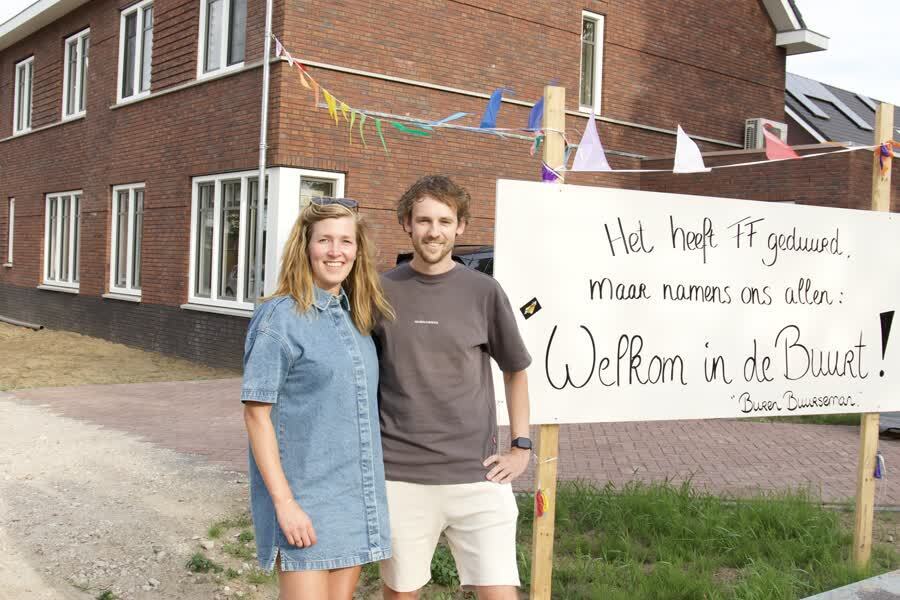 Het heeft FF geduurd,
maar namens ons allen:
Welkom in de Buurt!
"Buren Buurseman."